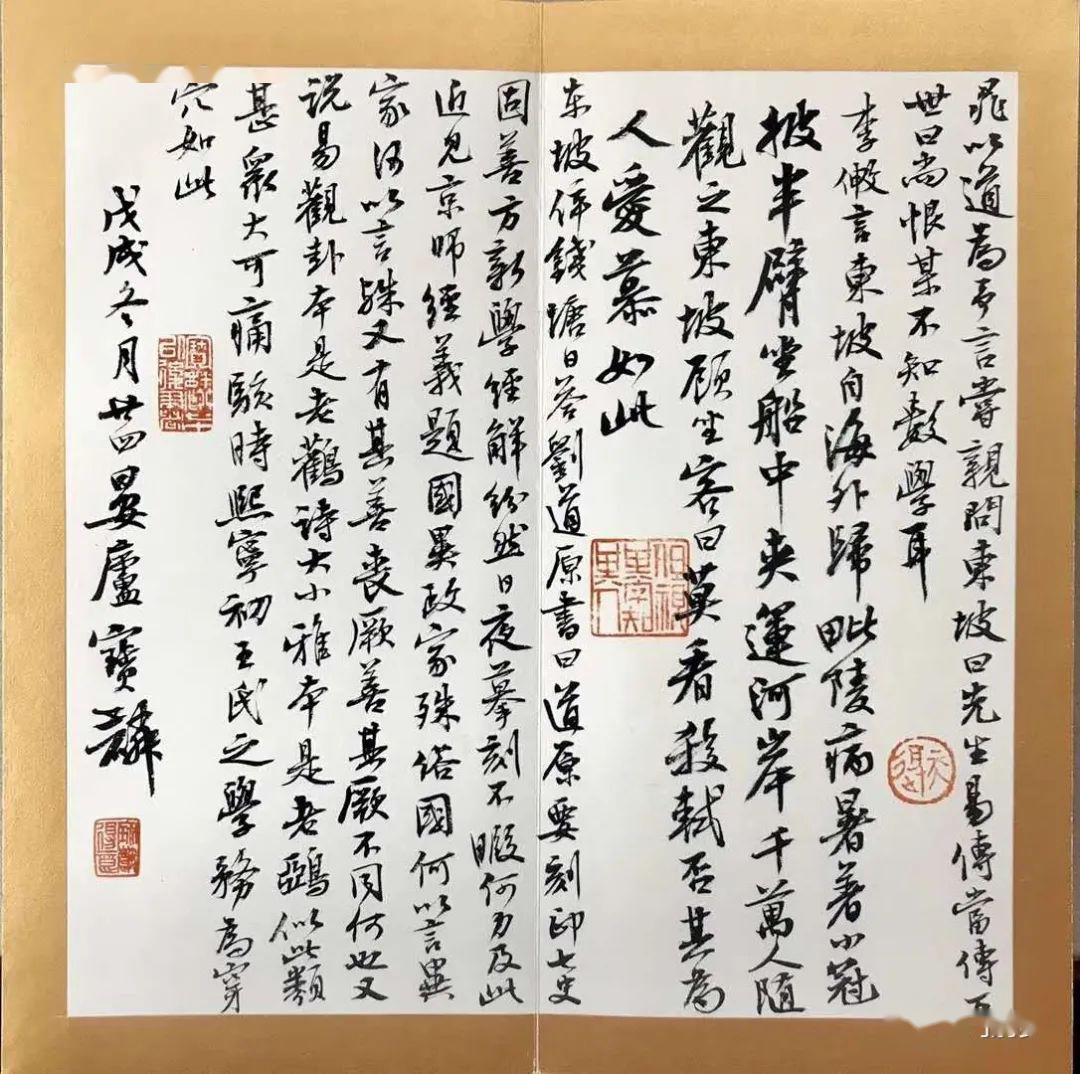 晁以道為予言嘗親問東坡曰先生易傳當傳万
世曰尚恨某不知數學耳
李儆言東坡自海外歸毗陵病暑著小冠
披半臂坐船中夾運河岸千萬人隨
觀之東坡顧坐客曰莫看殺軾否其為
人愛慕如此
東坡倅錢塘日答劉道原書曰道原要刻印七史
固善方新學經解紛然日夜摹刻不暇何力及此
近見京師經義題國異政家殊俗國何以言異
家何以言殊又有其善喪厥善其厥不同何也又
說易觀卦本是老鸛詩大小雅本是老鴉似此類
甚眾大可痛駭時熙寧初王氏之學務為穿
穴如此
戊戌冬月廿四晏廬寶麟